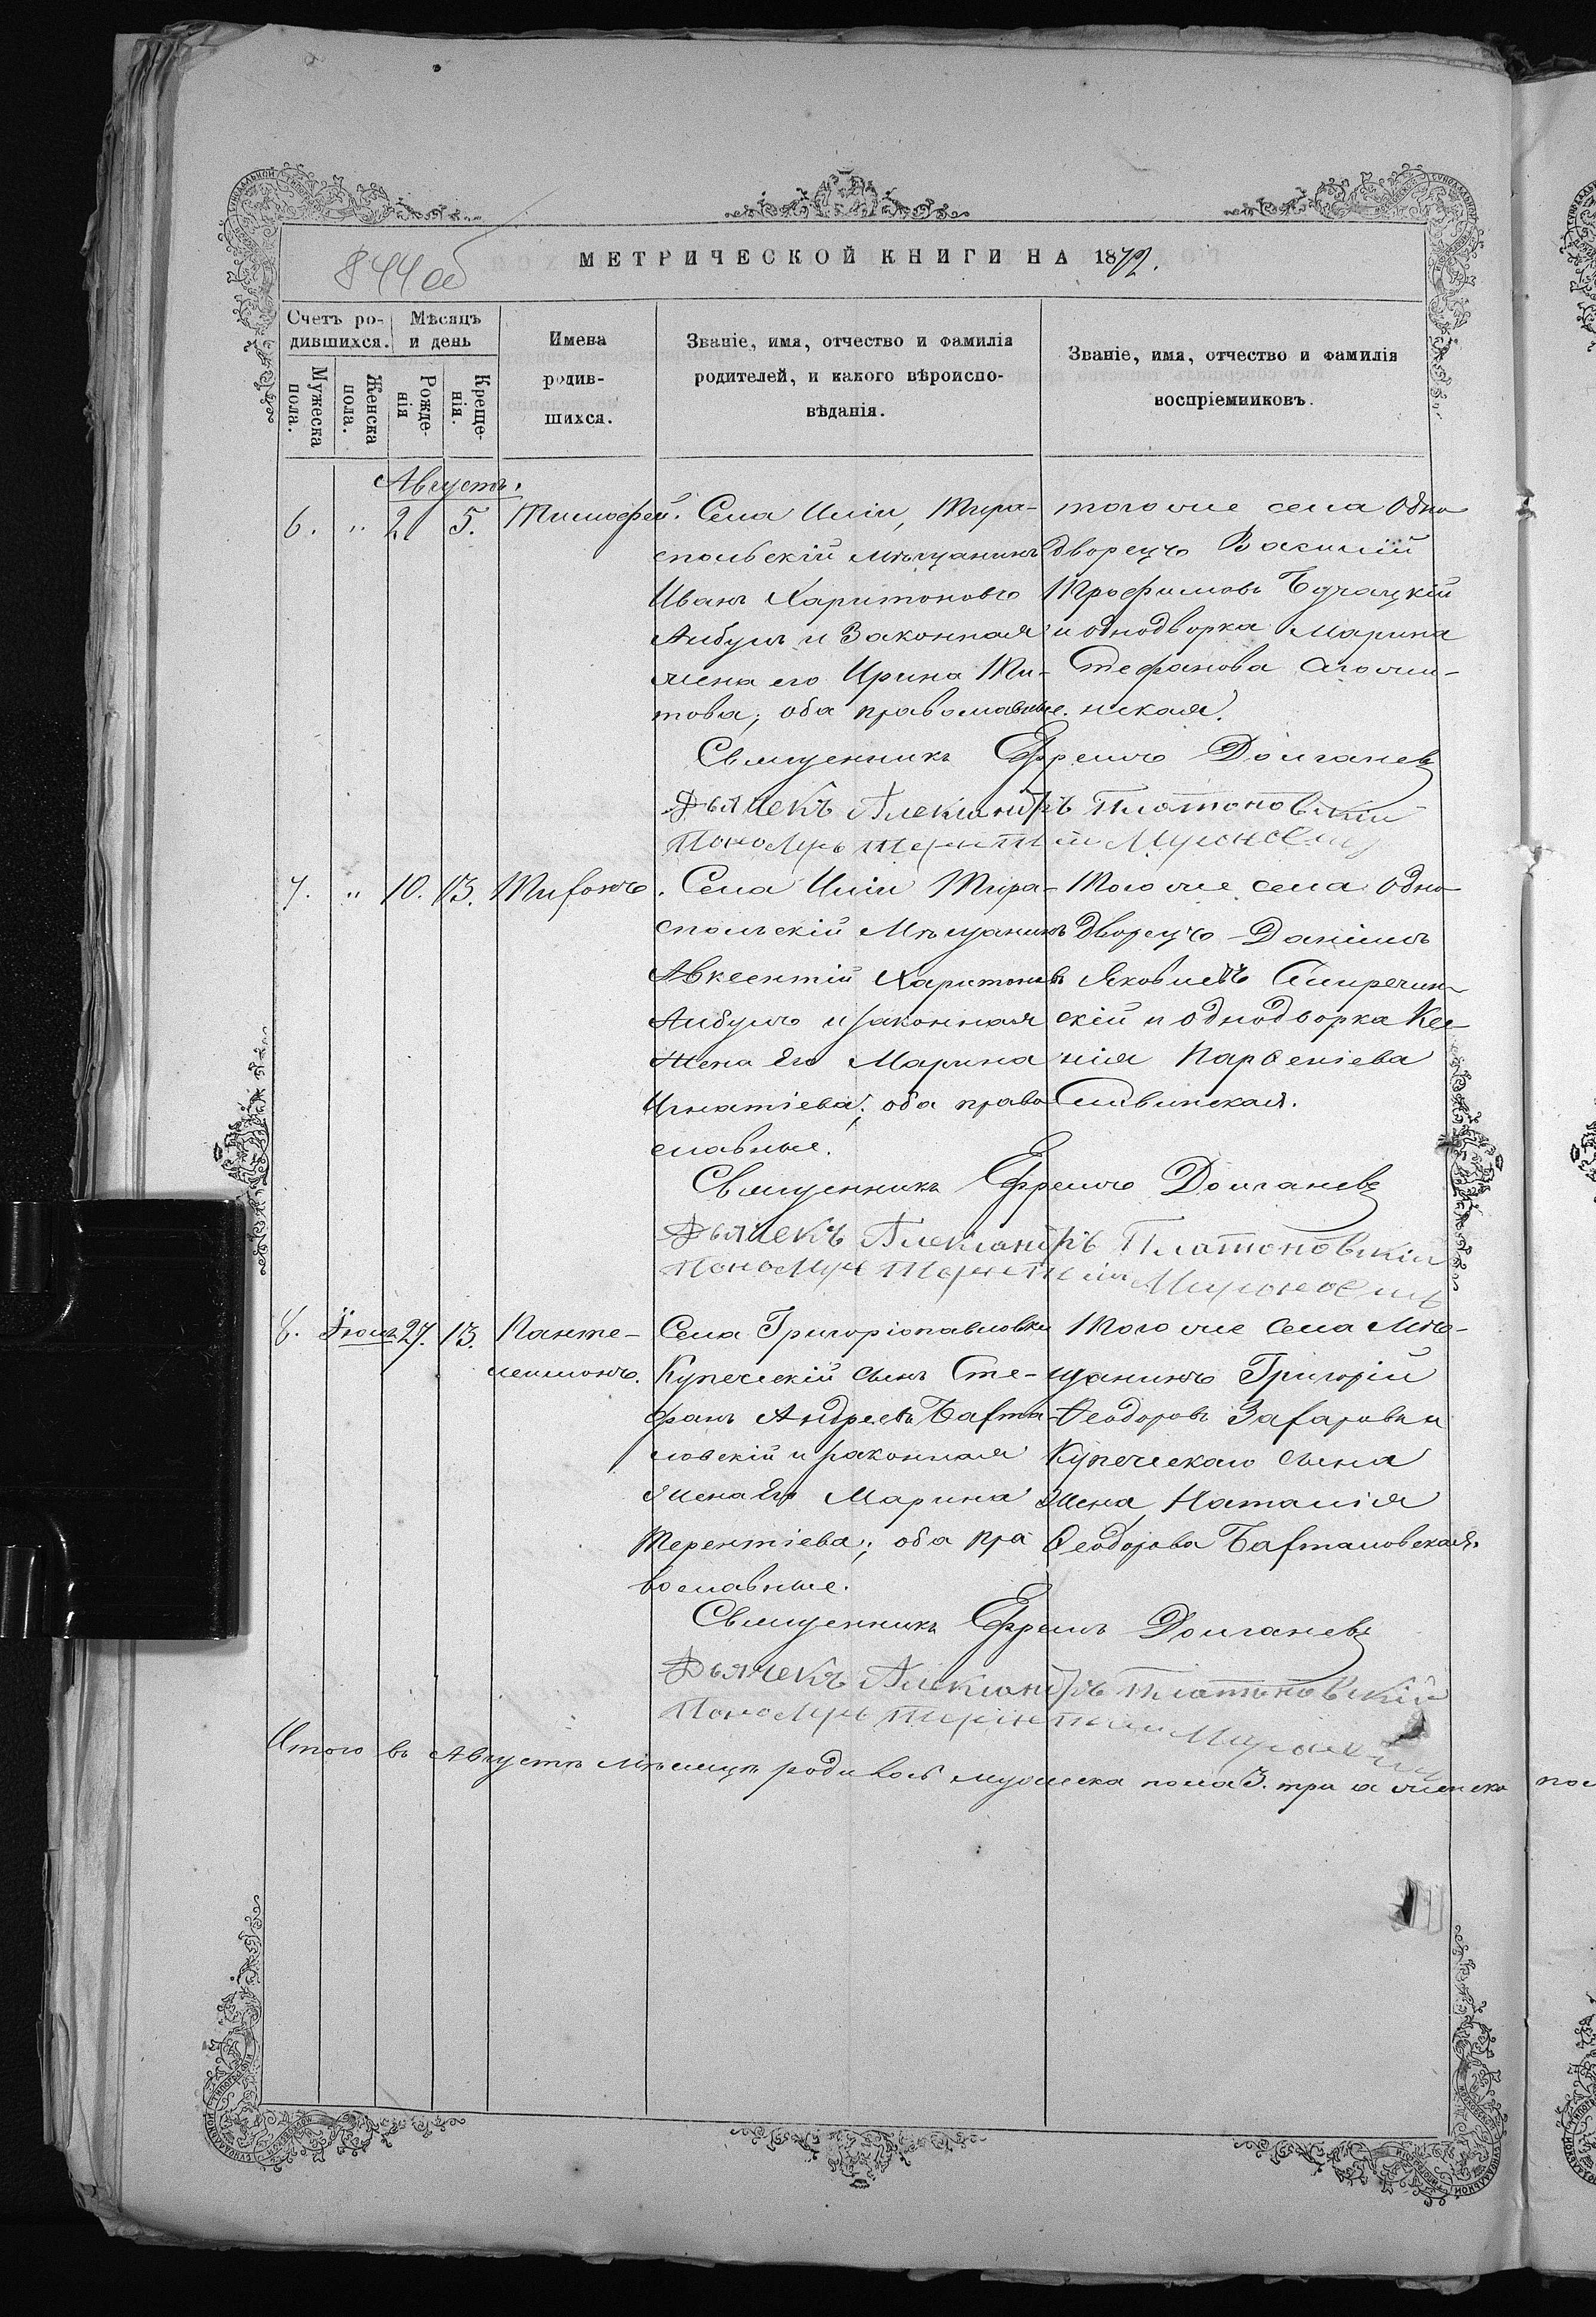 844 об
МЕТРИЧЕСКОЙ КНИГИ НА 1872.
Счетъ ро-
дившихся.
Мѣсяцъ
и день
Мужеска
пола.
Женска
пола.
Рожде-
нія
Креще-
нія.
Имена
родив-
шихся.
Званіе, имя, отчество и фамилія
родителей, и какого вѣроиспо-
вѣданія.
Званіе, имя, отчество и фамилія
воспріемниковъ.
Августъ.
6. " 2. 5. Тимофей.
Села Иліи, Тира-
спольскій мѣщанинъ
Иванъ Харитоновъ
Албулъ и Законная
жена его Ирина Ти-
това; оба православные.
того же села Одно-
дворецъ Василій
Трофимовъ Бучацкій
и однодворка Марина
Стефанова
нская.
Священникъ Ефремъ Долгановъ
Дьячекъ Александръ Платоновскій
Пономарь Терентій
7. " 10. 13. Тихонъ.
Села Иліи Тира-
спольскій Мѣщанинъ
Авксентій Харитоновъ
Албулъ и законная
жена Его Марина
Игнатіева; оба право-
славные.
Того же села Одно-
дворецъ Даніилъ
Яковлевъ
скій и однодворка Ксе-
нія Парѳеніева
Сливинская.
Священникъ Ефремъ Долгановъ
Дьячекъ Александръ Платоновскій
Пономарь Терентій
8. Іюля 27. 13. Панте-
леимонъ.
Села Григоріопавловки
Купеческій сынъ Сте-
фанъ Андреевъ Бахта-
ловскій и законная
жена Его Марина
Терентіева; оба пра
вославные.
Того же села Мѣ-
щанинъ Григорій
Ѳеодоровъ Захаровъ и
Купеческаго сына
жена Наталія
Ѳеодорова Бахталовская.
Священникъ Ефремъ Долгановъ
Дьячекъ Александръ Платоновскій
Пономарь Терентій
Итого въ Августѣ мѣсяцѣ родилось мужеска пола 3. три а женска пол